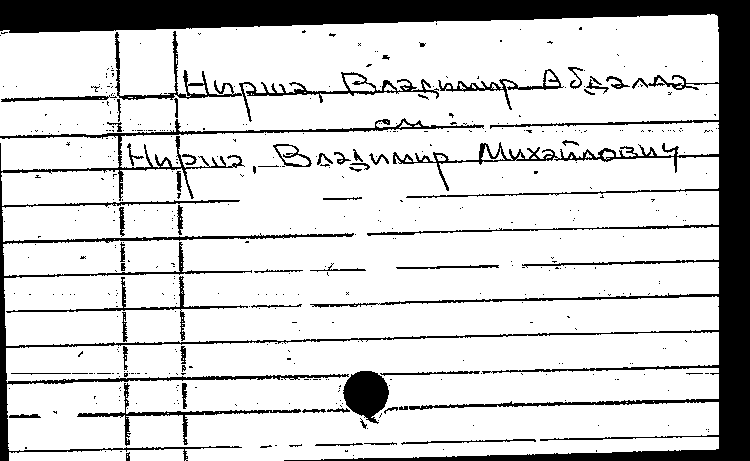 Нирша, Владимир Абдалла
см.:
Нирша, Владимир Михайлович